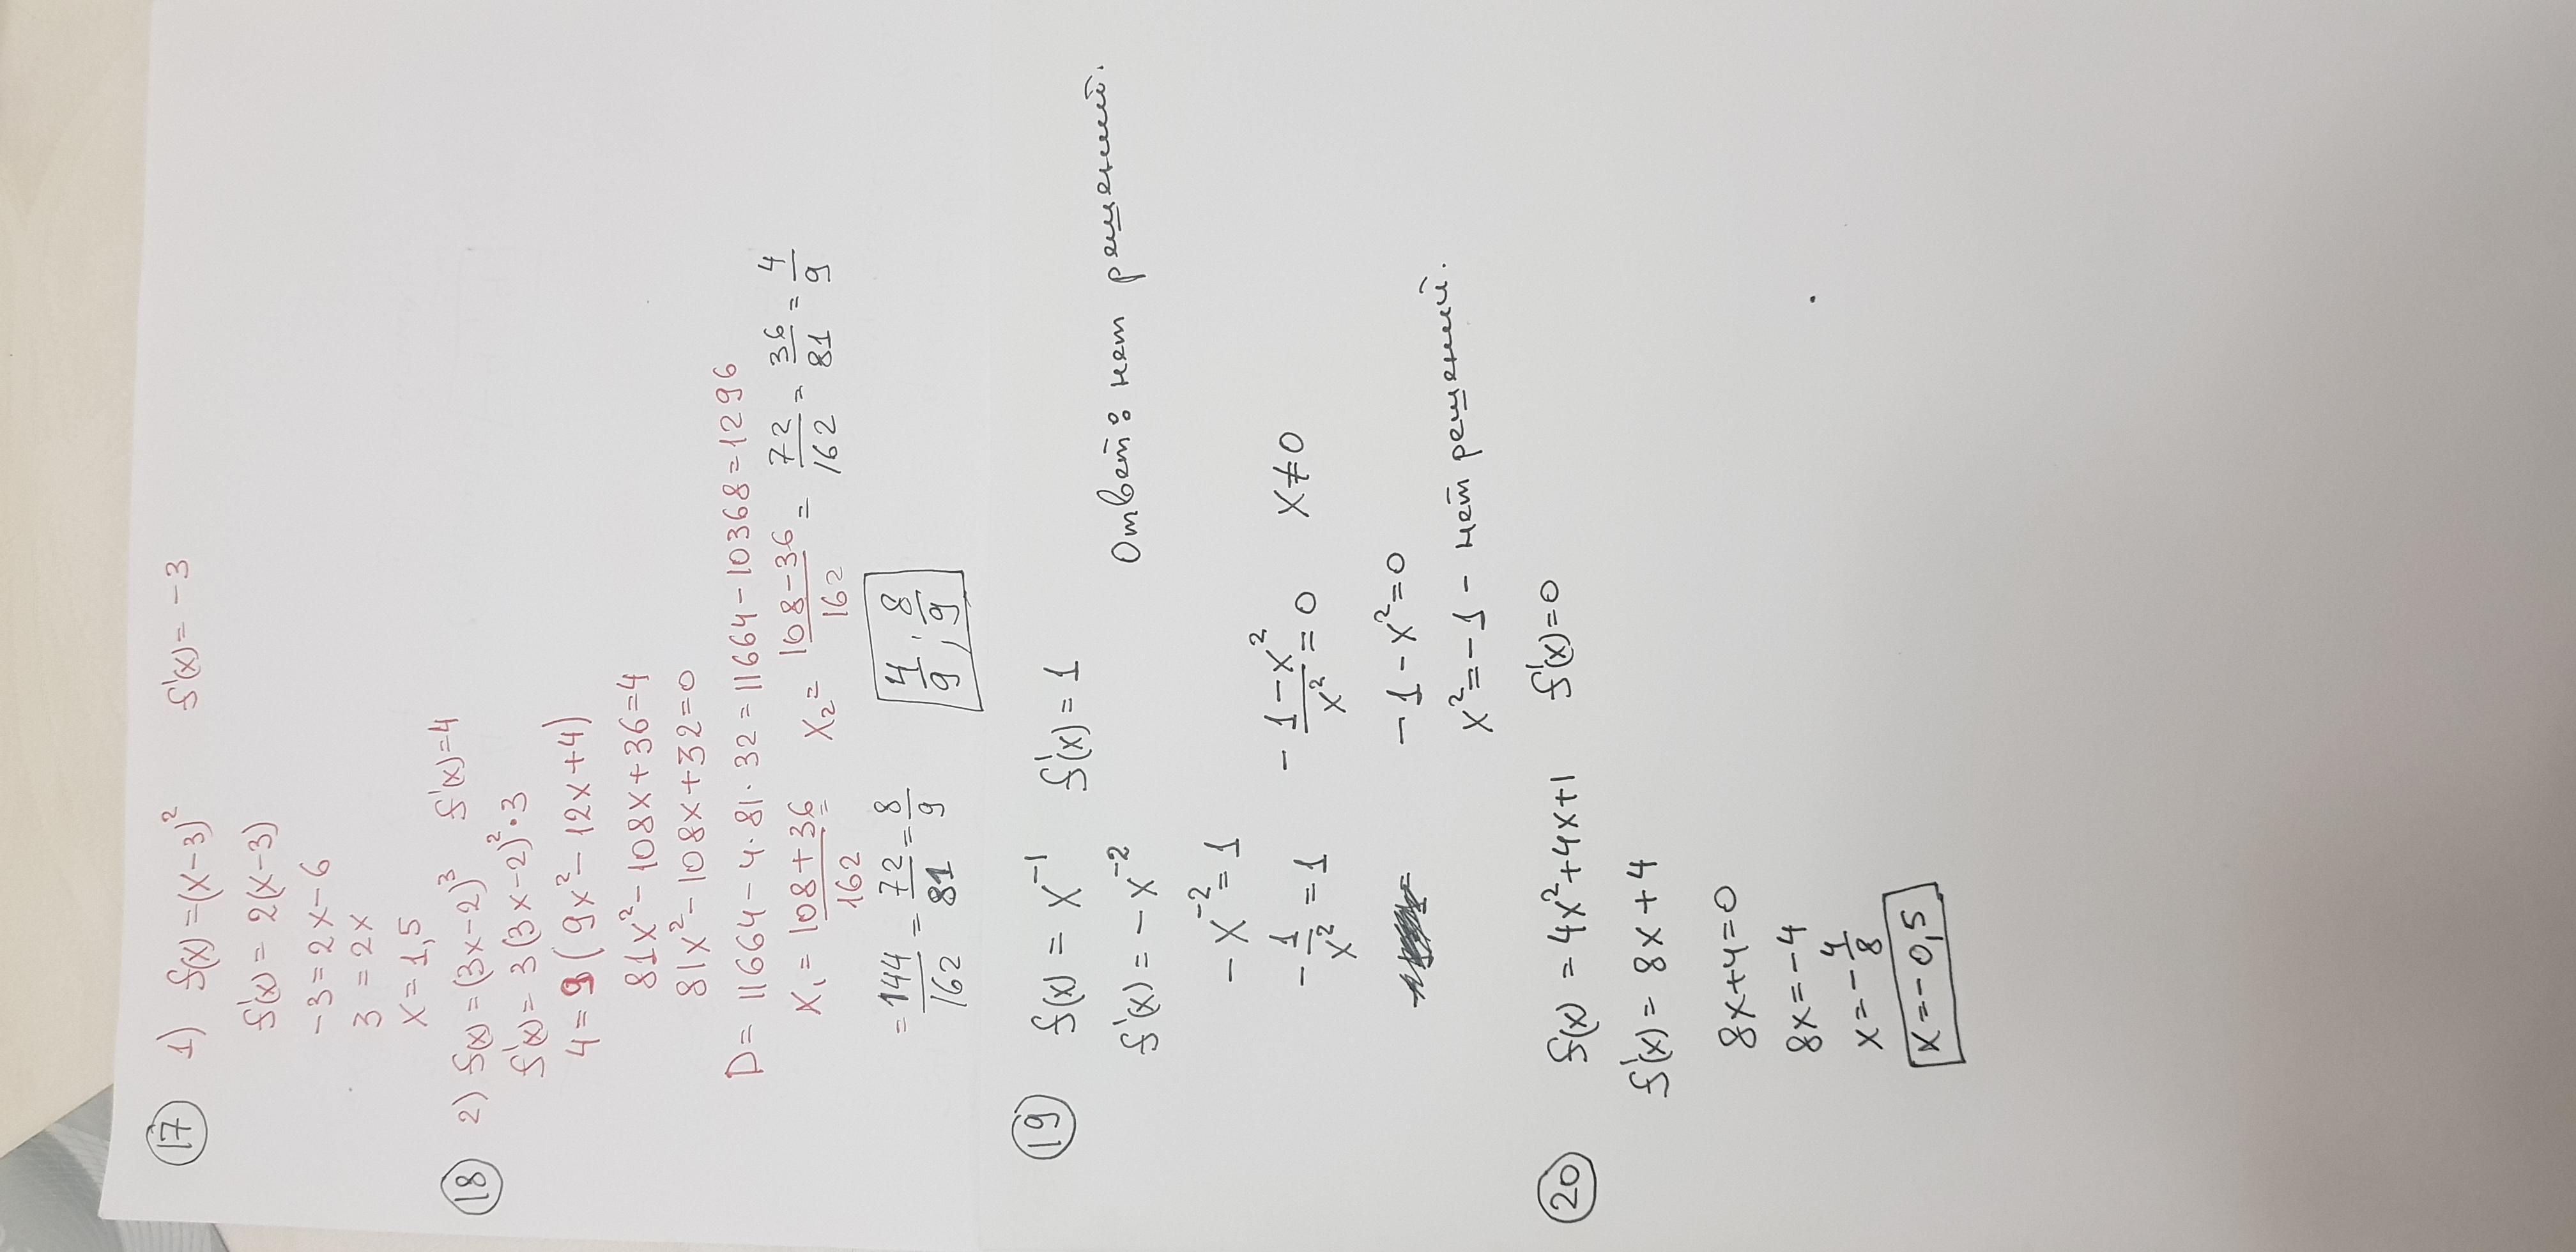 17 1) f(x) = (x-3)² f'(x) = -3
f'(x) = 2(x-3)
-3 = 2x - 6
3 = 2x
x = 1,5
18 2) f(x) = (3x-2)³ f'(x) = 4
f'(x) = 3(3x-2)²·3
4 = 9(9x² - 12x + 4)
81x² - 108x + 36 = 4
81x² - 108x + 32 = 0
D = 11664 - 4·81·32 = 11664 - 10368 = 1296
x₁ = (108+36)/162 = x₂ = (108-36)/162 = 72/162 = 36/81 = 4/9
= 144/162 = 72/81 = 8/9 4/9; 8/9
19 f(x) = x⁻¹ f'(x) = 1
f'(x) = -x⁻² Ответ: нет решений.
-x⁻² = 1
-1/x² = 1 -(1-x²)/x² = 0 x ≠ 0
-1 - x² = 0
x² = -1 - нет решений.
20 f(x) = 4x² + 4x + 1 f'(x) = 0
f'(x) = 8x + 4
8x + 4 = 0
8x = -4
x = -4/8
x = -0,5